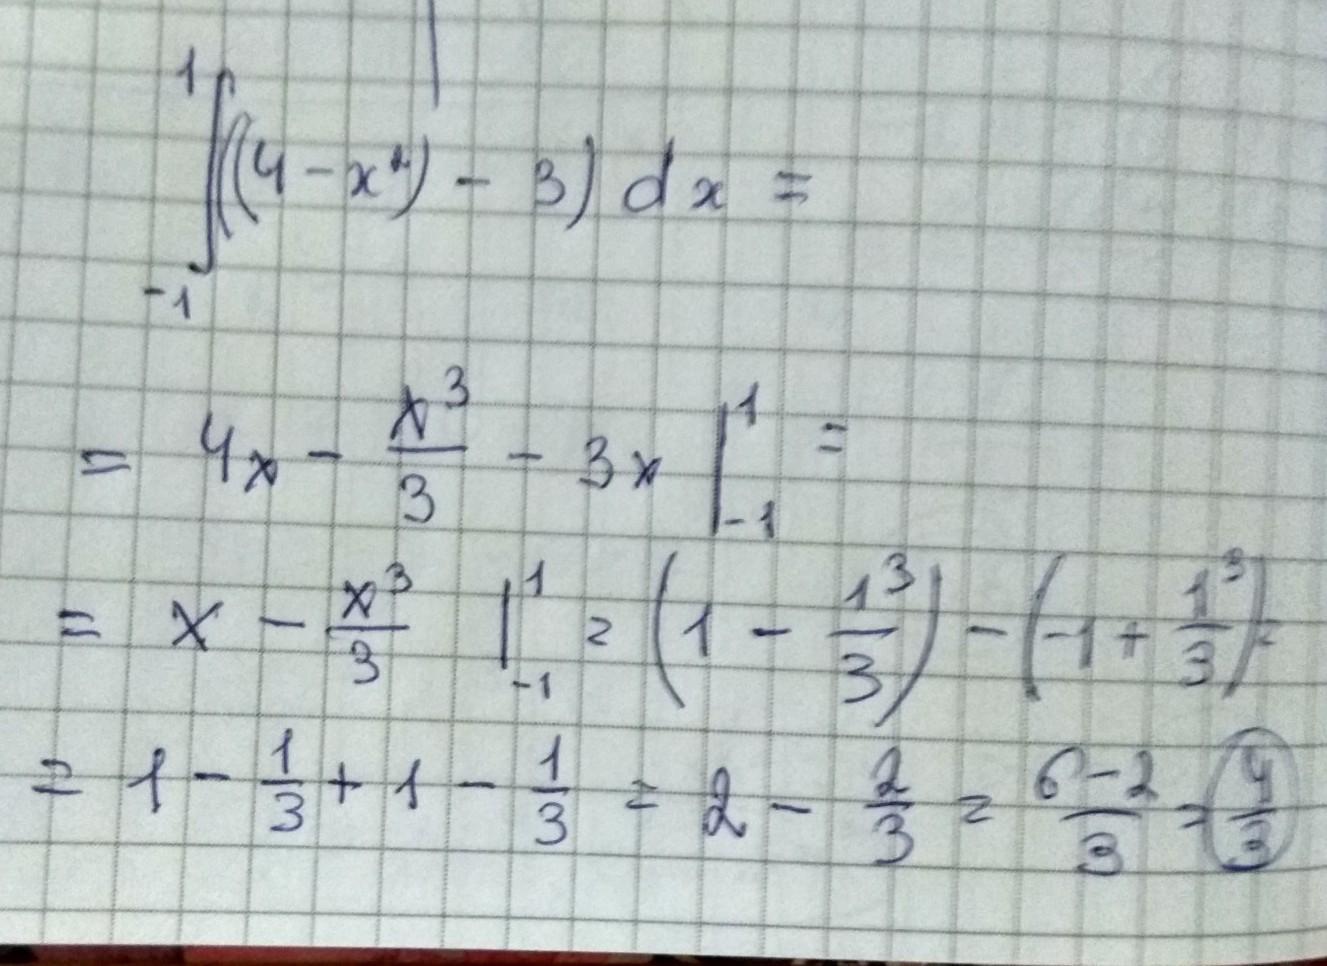 ∫_{-1}^{1} ((4 - x²) - 3) dx =
= 4x - x³/3 - 3x |_{-1}^{1} =
= x - x³/3 |_{-1}^{1} = (1 - 1³/3) - (-1 + 1³/3) =
= 1 - 1/3 + 1 - 1/3 = 2 - 2/3 = (6-2)/3 = 4/3